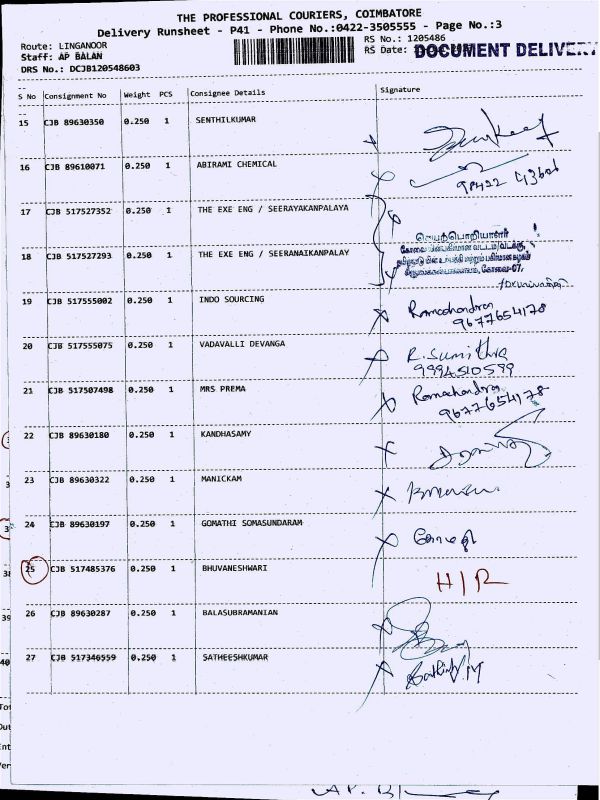 THE PROFESSIONAL COURIERS, COIMBATORE
Delivery Runsheet - P41 - Phone No.:0422-3505555 - Page No.:3
Route: LINGANOOR
RS No.: 1205486
Staff: AP BALAN
RS Date:
DOCUMENT DELIVERY
DRS No.: DCJB120548603
S No Consignment No Weight PCS Consignee Details Signature
15 CJB 89630350 0.250 1 SENTHILKUMAR
16 CJB 89610071 0.250 1 ABIRAMI CHEMICAL
17 CJB 517527352 0.250 1 THE EXE ENG / SEERAYAKANPALAYA
18 CJB 517527293 0.250 1 THE EXE ENG / SEERANAIKANPALAY
செயற்பொறியாளர்
19 CJB 517555002 0.250 1 INDO SOURCING Ramachandran
9677654178
20 CJB 517555075 0.250 1 VADAVALLI DEVANGA R. Sumithra
9994510599
21 CJB 517507498 0.250 1 MRS PREMA Ramachandran
9677654178
22 CJB 89630180 0.250 1 KANDHASAMY
23 CJB 89630322 0.250 1 MANICKAM
24 CJB 89630197 0.250 1 GOMATHI SOMASUNDARAM
25 CJB 517485376 0.250 1 BHUVANESHWARI H/R
26 CJB 89630287 0.250 1 BALASUBRAMANIAN
27 CJB 517346559 0.250 1 SATHEESHKUMAR
38
39
40